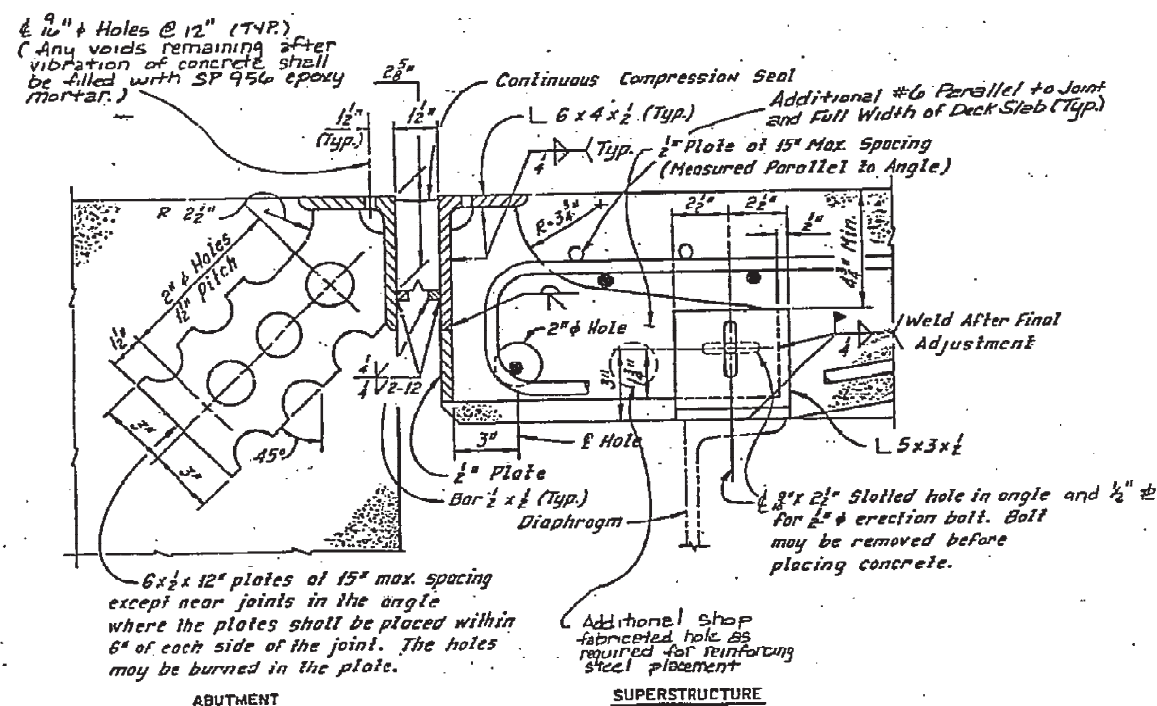 ℄ 9/16" φ Holes @ 12" (TYP.)
( Any voids remaining after
vibration of concrete shall
be filled with SP 956 epoxy
mortar. )
2 5/8"
1 1/2"
(Typ.)
1 1/2"
Continuous Compression Seal
L 6 x 4 x 1/2 (Typ.)
Additional #6 Parallel to Joint
and Full Width of Deck Slab (Typ.)
1/4
(Typ.
1/2" Plate at 15" Max. Spacing
(Measured Parallel to Angle)
R 2 1/2"
R=3 3/4"
2 1/2"
2 1/2"
1/2"
4 1/4" Min.
2" φ Holes
1 1/2" Pitch
1 1/2"
2" φ Hole
Weld After Final
Adjustment
1/4
1/4
1/4
2-12
3"
1 3/4"
3"
3"
45°
3"
℄ Hole
L 5 x 3 x 1/2
1/2" Plate
Bar 1/2 x 1/2 (Typ.)
Diaphragm
℄ 9/16" x 2 1/2" Slotted hole in angle and 1/2" ℄
for 1/2" φ erection bolt. Bolt
may be removed before
placing concrete.
6 x 1/2 x 12" plates at 15" max. spacing
except near joints in the angle
where the plates shall be placed within
6" of each side of the joint. The holes
may be burned in the plate.
Additional shop
fabricated hole as
required for reinforcing
steel placement
ABUTMENT
SUPERSTRUCTURE